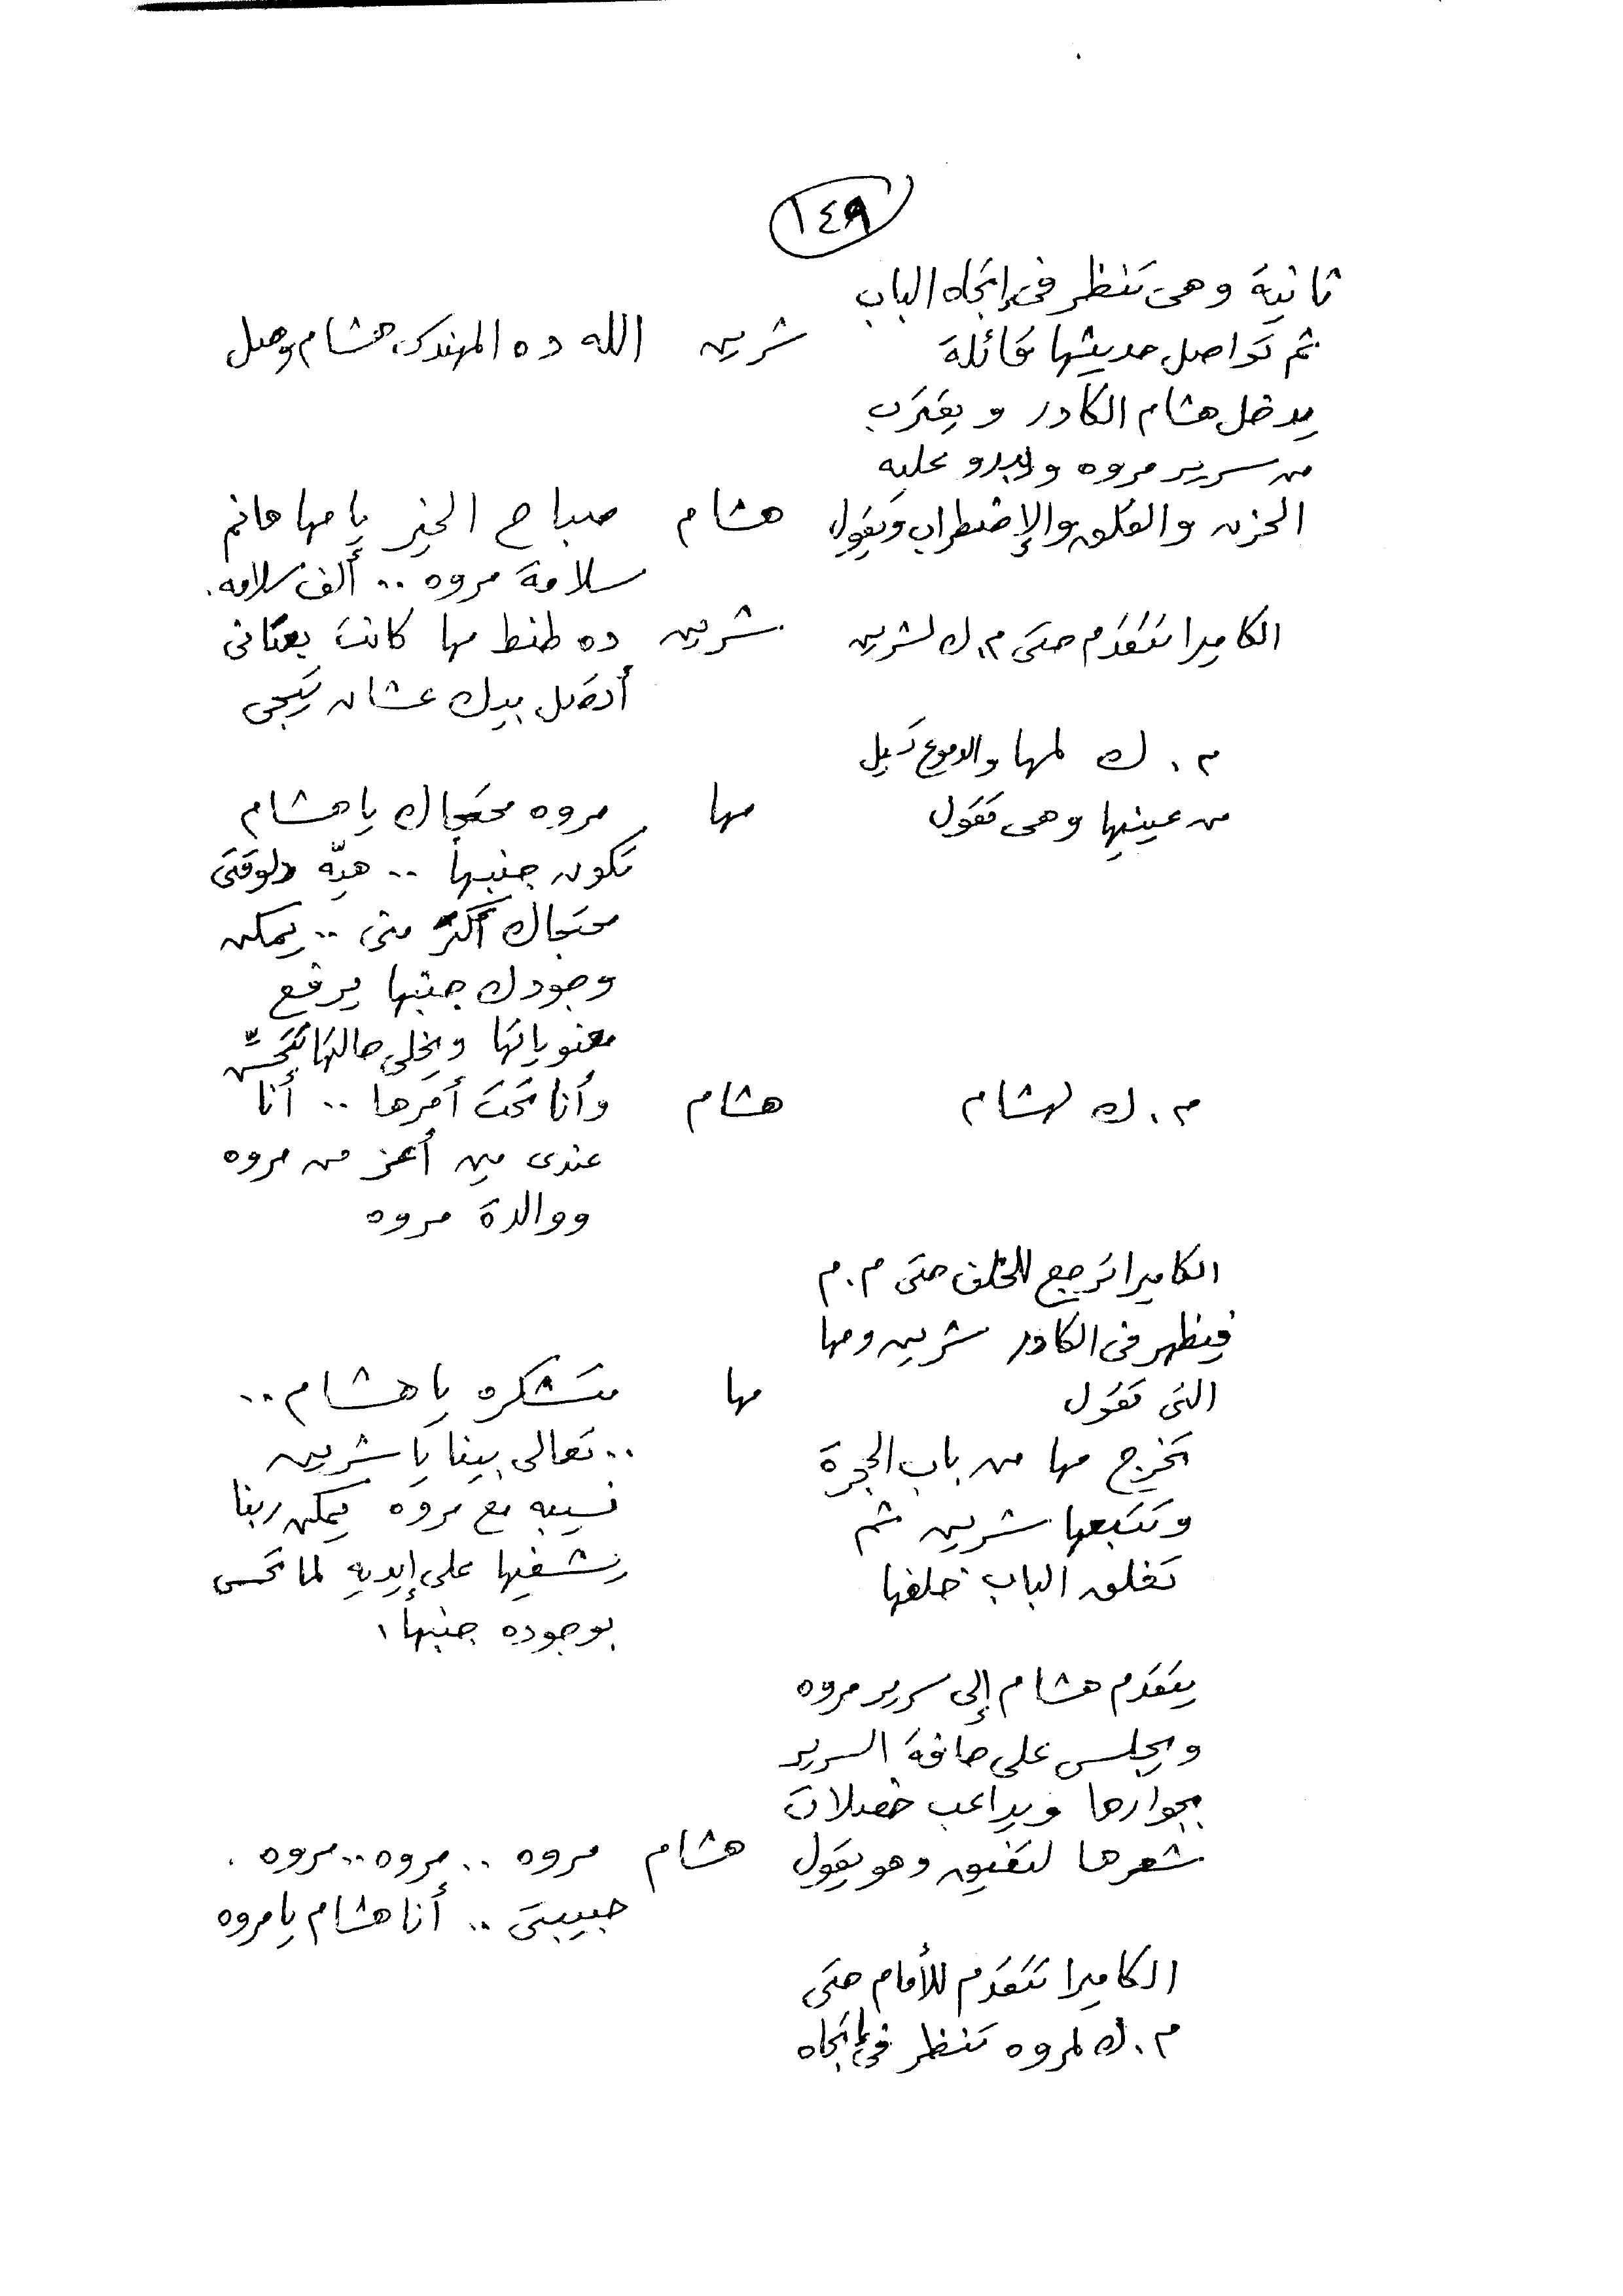 ١٤٩
ثانية وهى تنظر فى إتجاه الباب
ثم تواصل حديثها قائلة شرين الله ده المهندس هشام وصل
يدخل هشام الكادر ويقترب
من سرير مروه ويبدو عليه
الحزن والقلق والإضطراب ويقول هشام صباح الخير يا مها هانم
سلامة مروه .. ألف سلامه.
الكاميرا تتقدم حتى م.ك لشرين شرين ده طنط مها كانت بعتانى
أتصل بيك عشان تيجى
م.ك لمها والدموع تسيل
من عينيها وهى تقول مها مروه محتجاك يا هشام
تكون جنبها .. هيّه دلوقتى
محتجاك أكتر منى .. يمكن
وجودك جنبها يرفع
معنوياتها ويخلى حالتها تتحسّن
م.ك لهشام هشام وأنا تحت أمرها .. أنا
عندى مين أعز من مروه
ووالدة مروه
الكاميرا ترجع للخلف حتى م.م
فيظهر فى الكادر شرين ومها
التى تقول مها متشكره يا هشام ..
تخرج مها من باب الحجرة .. تعالى بينا يا شرين
وتتبعها شرين ثم نسيبه مع مروه يمكن ربنا
تغلق الباب خلفها يشفيها على إيديه لما تحس
بوجوده جنبها.
يتقدم هشام إلى سرير مروه
ويجلس على حافة السرير
بجوارها ويداعب خصلات
شعرها لتفيق وهو يقول هشام مروه .. مروه .. مروه .
حبيبتى .. أنا هشام يا مروه
الكاميرا تتقدم للأمام حتى
م.ك لمروه تنظر فى إتجاه